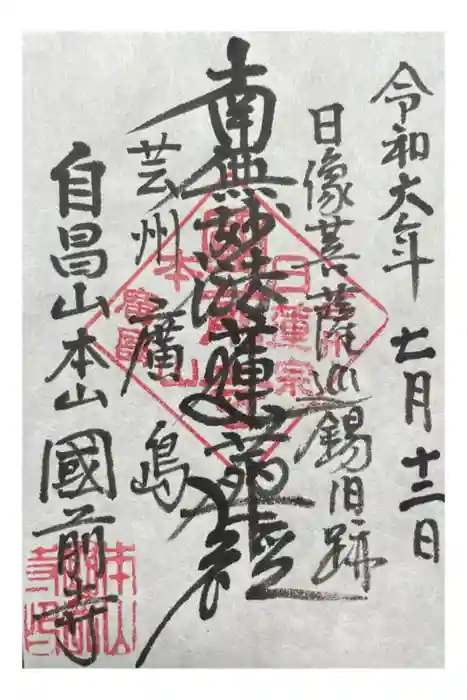 令和六年 七月 十三日
日像菩薩巡錫旧跡
南無妙法蓮華經
芸州 廣 島
自昌山本山 國前寺
日蓮宗
廣島
本山